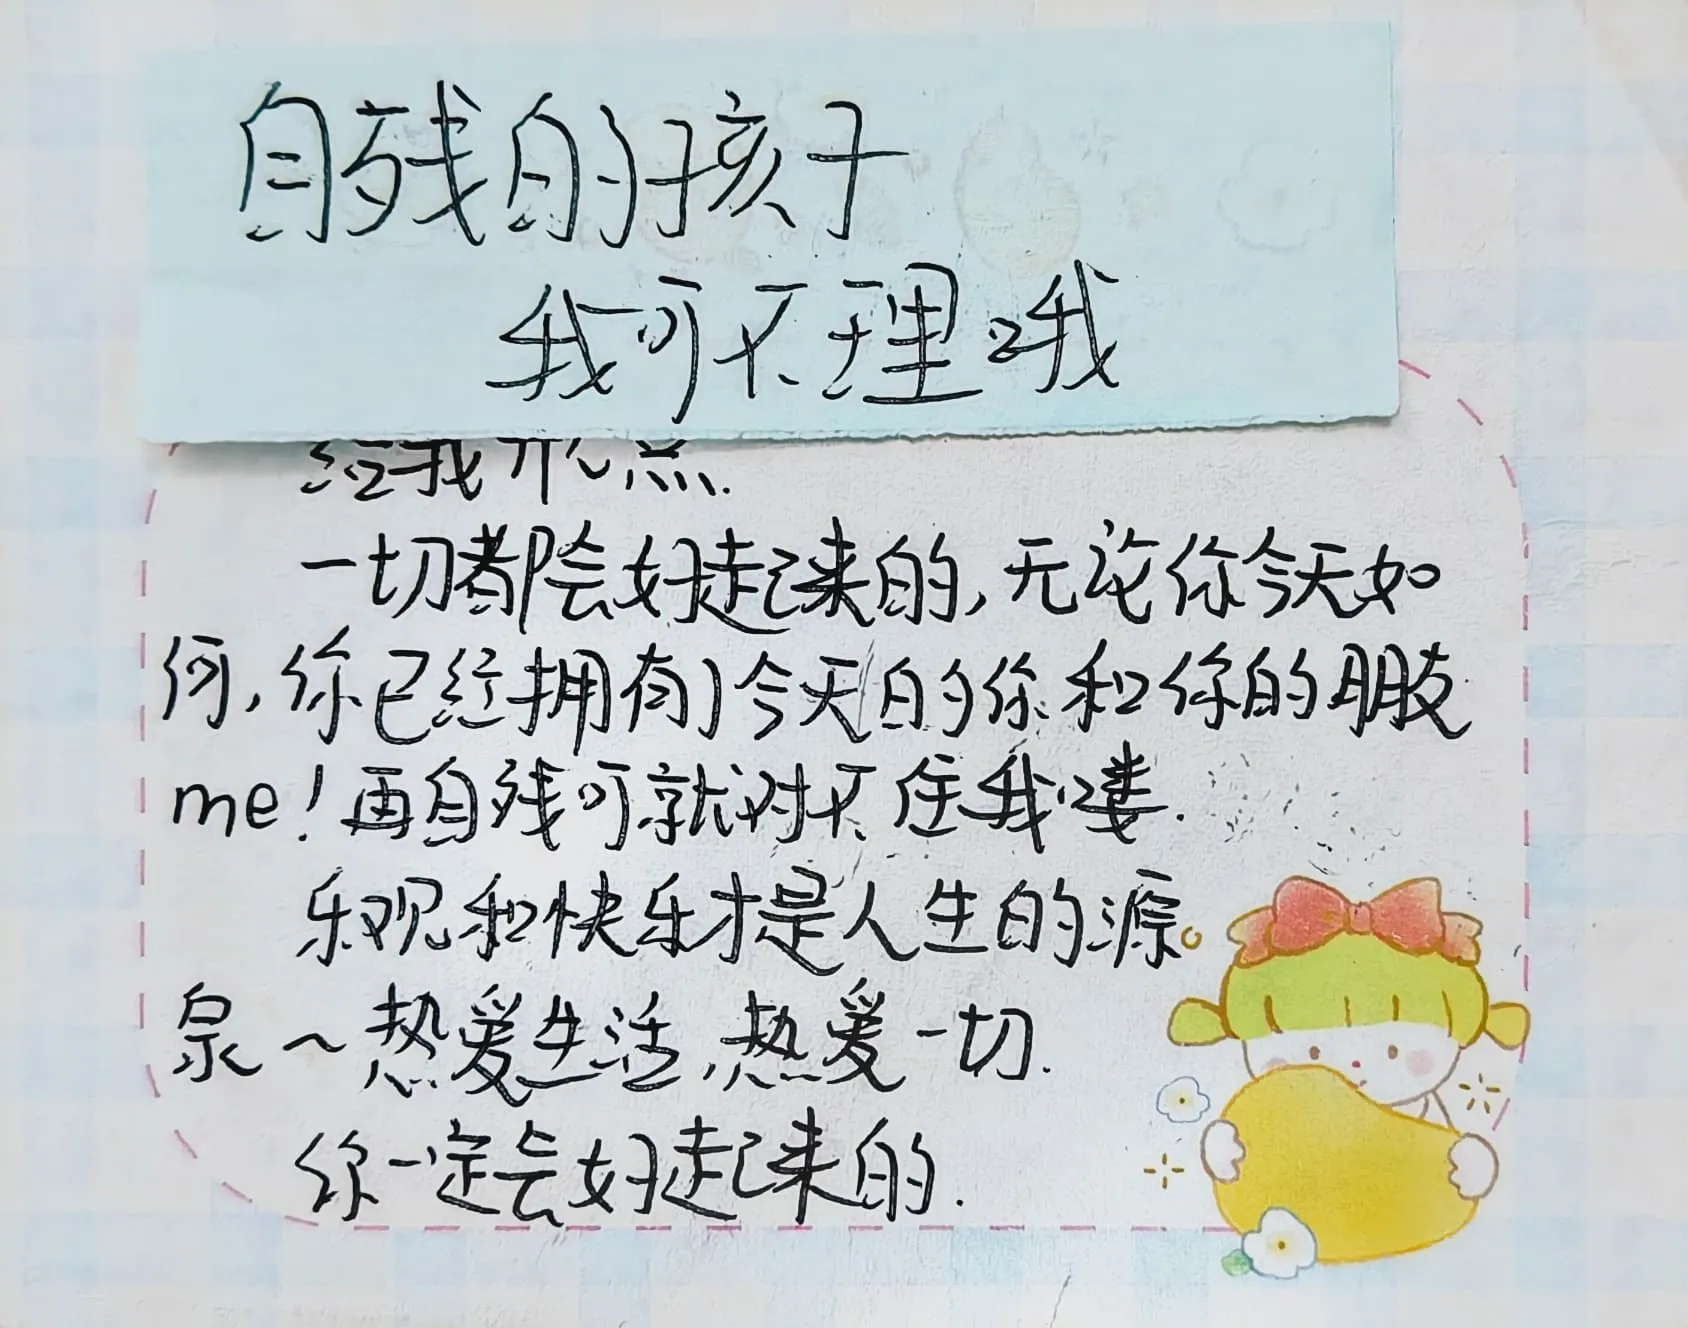 自残的孩子
我可不理哦
给我开心点.
一切都会好起来的,无论你今天如
何,你已经拥有了今天的你和你的朋友
me!再自残可就对不住我喽.
乐观和快乐才是人生的源
泉~热爱生活,热爱一切.
你一定会好起来的.